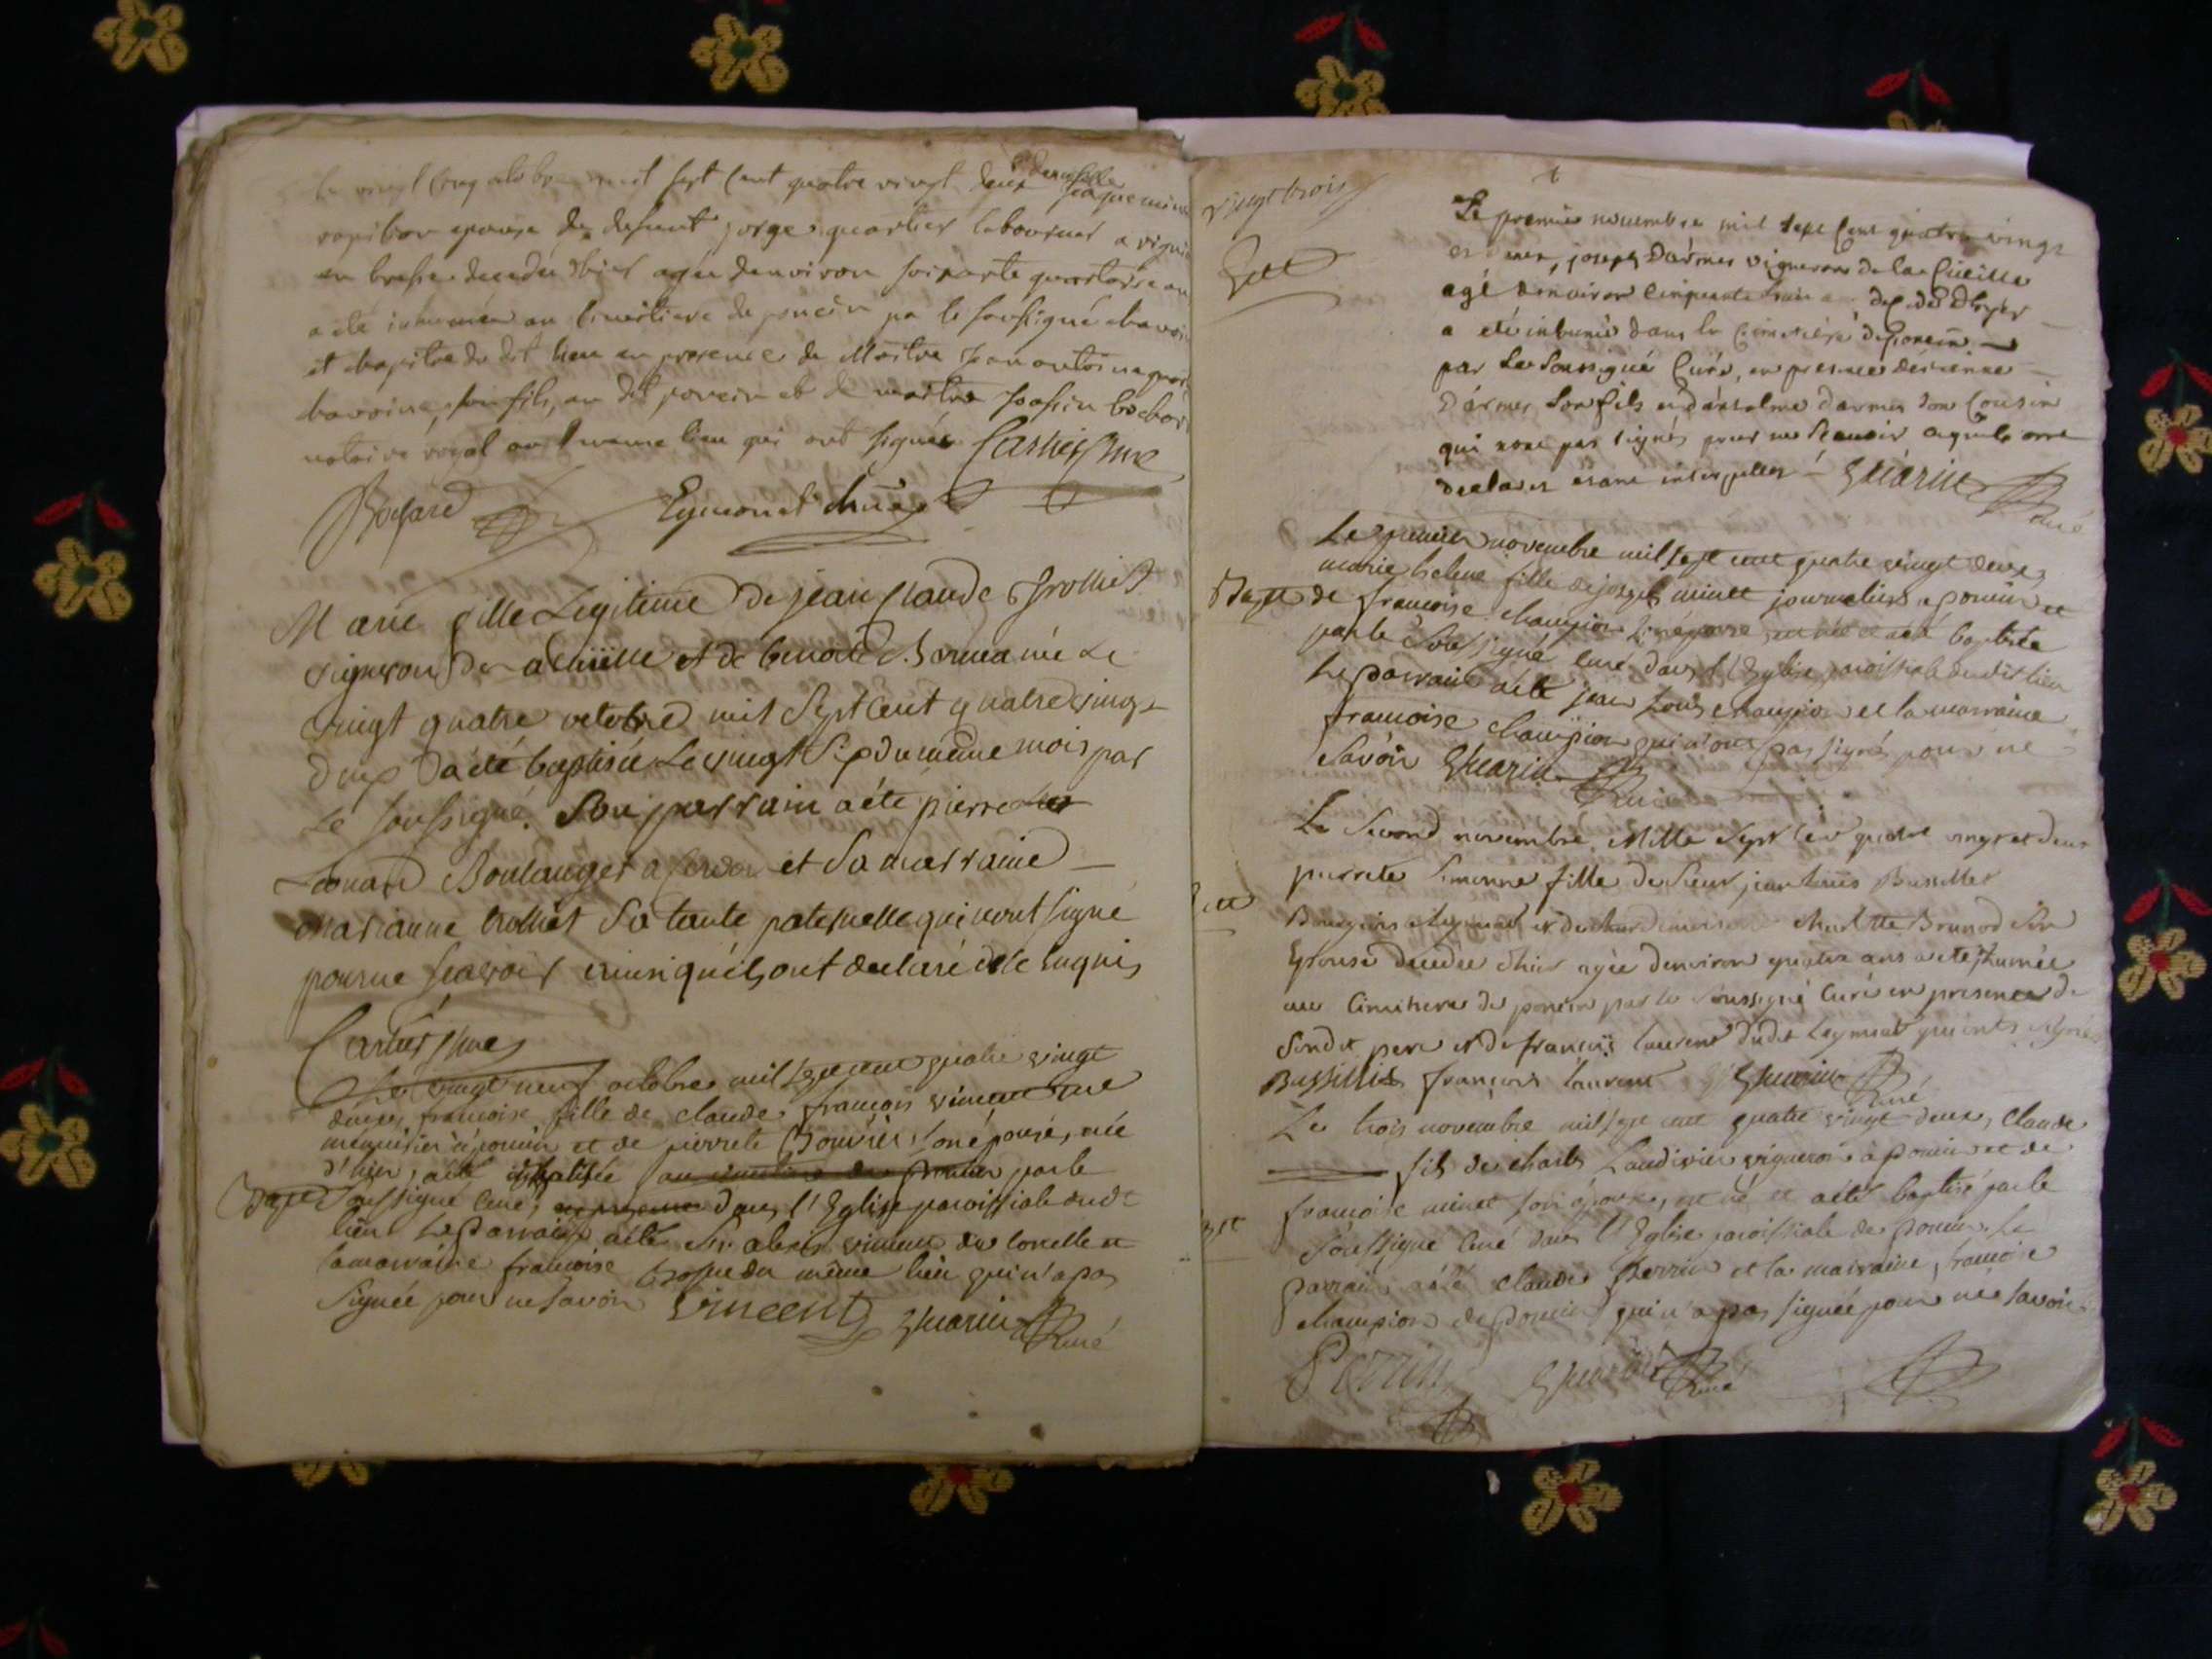 le vingt cinq octobre mil sept cent quatre vingt deux demoiselle
jaquemine
epouse de defunt jorge quartier laboureur a
en bresse decedée d'hier agée d'environ soixante quatorze an
a été inhumée au cimetiere de poncin par le soussigné
et chapitre du dit lieu en presence de Maitre
son fils, au dit poncin et de maitre
notaire royal au meme lieu qui ont signés Cartier
Bochard
Marie fille Legitime de jean Claude trolliet
vigneron de la Cüeille et de benoite née Le
vingt quatre octobre mil Sept Cent quatre vingt
deux a été baptisée Le vingt Six du même mois par
Le soussigné. Son parrain a été pierre
Boulanger a et Sa marraine
marianne trolliet Sa tante paternelle qui n'ont signé
pour ne scavoir ainsi qu'ils ont declaré de ce enquis
Cartier
Le vingt neuf octobre mil sept cent quatre vingt
deux, francoise fille de claude françois vincent
menuisier à poncin et de pierrete Bouvier son épouse, née
d'hier, a été baptisée par le
Bapt soussigné curé, dans l'Eglise paroissiale dudt
lieu Le parrain a été Sr. alexis vincent
la marraine francoise du même lieu qui n'a pas
Signée pour ne savoir Vincent Guérin
curé
vingt trois
Le premier novembre mil sept Cent quatre vingt
et deux, joseph Darmes vigneron de la Cüeille
agé d'environ Cinquante ans decedé d'hyer
a été inhumé dans le Cimetiere de poncin
par Le Soussigné Curé, en presence d'étienne
Darmes Son fils et d'antelme darmes Son Cousin
qui n'ont pas signés pour ne Scavoir
declarer étant interpellés Guérin
curé
Le premier novembre mil sept cent quatre vingt deux,
marie helene fille de joseph minet journalier a poncin et
Bapt de francoise champion son épouse, est née et a été baptisée
par le Soussigné curé dans l'Eglise paroissiale dudit lieu
Le parrain a été jean Louis champion et la marraine
francoise champion qui n'ont pas signés pour ne
Savoir Guérin
curé
Le Second novembre Mille Sept Cent quatre vingt et deux
pierrete Simonne fille de Sieur jean Louis
Bourgeois a Leymiat et de charlotte Brunod Son
Epouse decedée d'hier agée d'environ quatre ans a été inhumée
au Cimitiere de poncin par le Soussigné Curé en presence de
Sondit pere et de françois laurent dudit Leymiat qui ont signé
françois laurent Guérin
curé
Le trois novembre mil sept cent quatre vingt deux, Claude
fils de charles Landivier vigneron à poncin et de
francoise minet son épouse, est né et a été baptisé par le
Soussigné Curé dans l'Eglise paroissiale de Poncin. Le
parrain a été claude Perrin et la marraine francoise
champion de Poncin qui n'a pas signée pour ne savoir
Perrin Guérin
curé